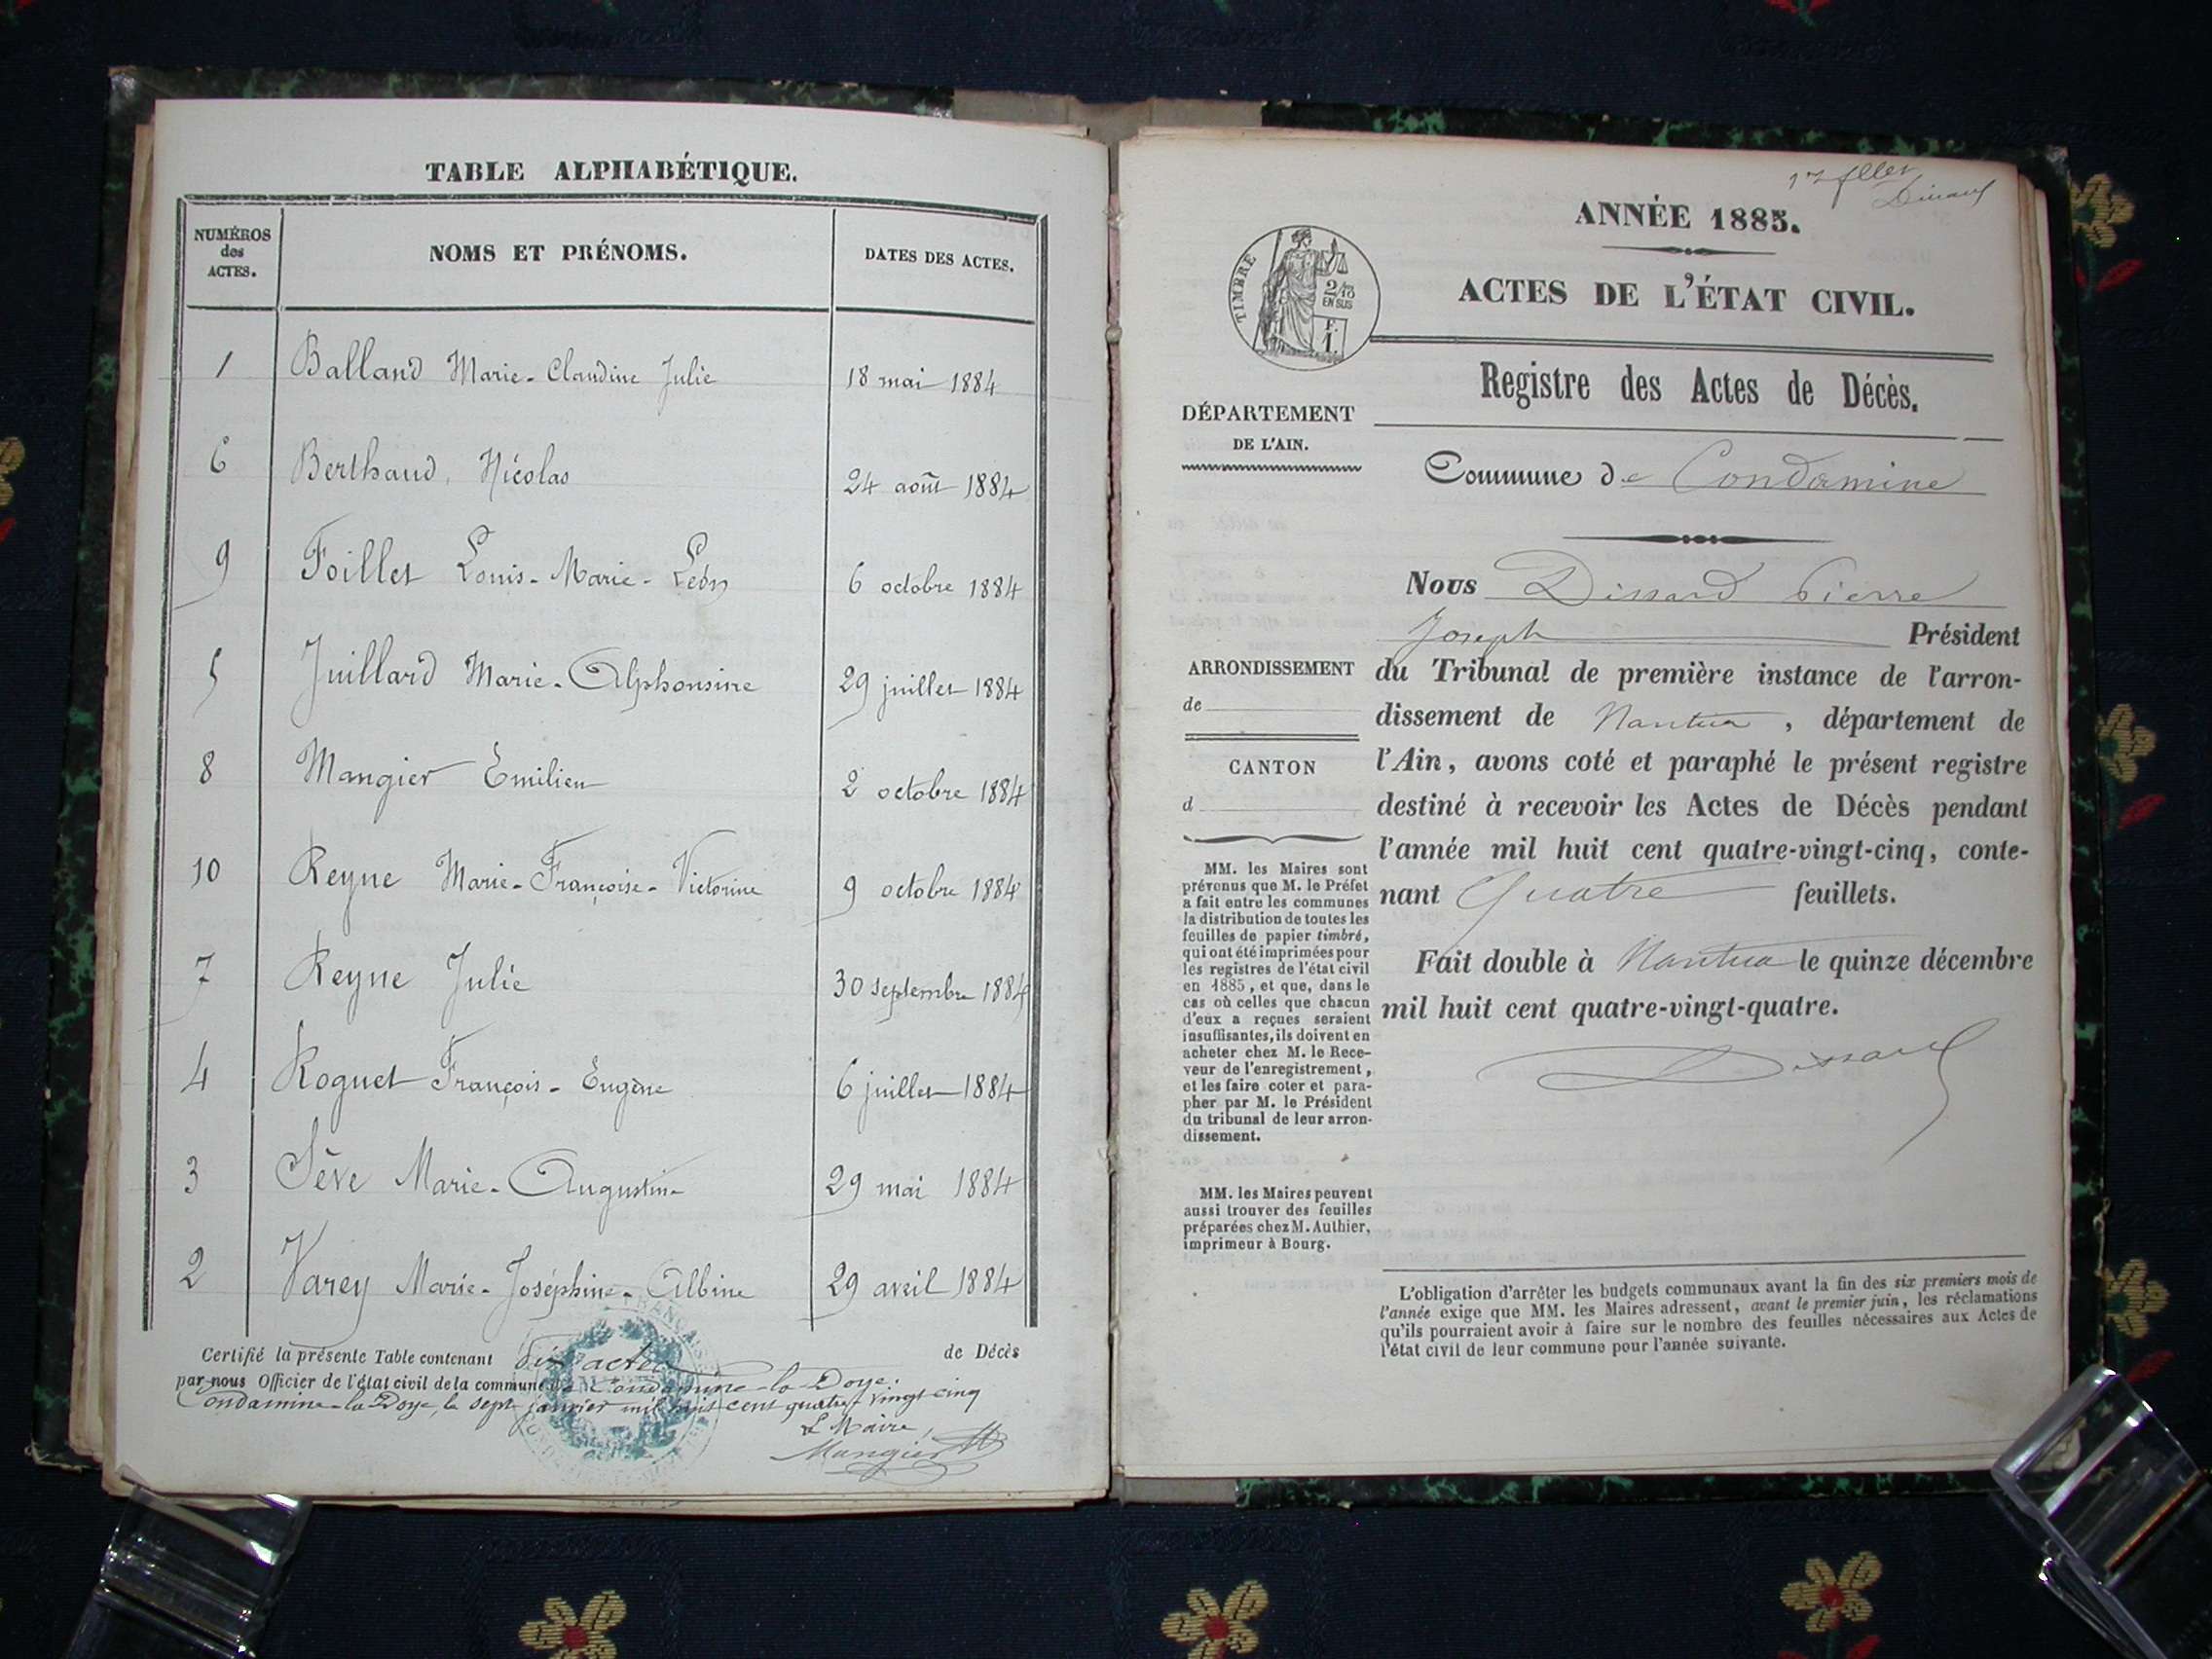 TABLE ALPHABÉTIQUE.
NUMÉROS des ACTES. NOMS ET PRÉNOMS. DATES DES ACTES.
1 Balland Marie-Claudine Julie 18 mai 1884
6 Berthaud, Nicolas 24 août 1884
9 Foillet Louis-Marie-Léon 6 octobre 1884
5 Juillard Marie-Alphonsine 29 juillet 1884
8 Mangier Emilien 2 octobre 1884
10 Reyne Marie-Françoise-Victorine 9 octobre 1884
7 Reyne Julie 30 septembre 1884
4 Roguet François-Eugène 6 juillet 1884
3 Sève Marie-Augustine 29 mai 1884
2 Varey Marie-Joséphine-Albine 29 avril 1884
Certifié la présente Table contenant dix actes de Décès
par nous Officier de l'état civil de la commune de Condamine-la-Doye.
Condamine-la-Doye, le sept janvier mil huit cent quatre-vingt cinq
Le Maire,
Mangier
ANNÉE 1885.
ACTES DE L'ÉTAT CIVIL.
TIMBRE
2/10
EN SUS
F.
1.
Registre des Actes de Décès.
DÉPARTEMENT
DE L'AIN.
Commune de Condamine
Nous Dissard Pierre
Joseph Président
du Tribunal de première instance de l'arron-
dissement de Nantua, département de
l'Ain, avons coté et paraphé le présent registre
destiné à recevoir les Actes de Décès pendant
l'année mil huit cent quatre-vingt-cinq, conte-
nant Quatre feuillets.
Fait double à Nantua le quinze décembre
mil huit cent quatre-vingt-quatre.
Dissard
ARRONDISSEMENT
de
CANTON
d
MM. les Maires sont
prévenus que M. le Préfet
a fait entre les communes
la distribution de toutes les
feuilles de papier timbré,
qui ont été imprimées pour
les registres de l'état civil
en 1885, et que, dans le
cas où celles que chacun
d'eux a reçues seraient
insuffisantes, ils doivent en
acheter chez M. le Rece-
veur de l'enregistrement,
et les faire coter et para-
pher par M. le Président
du tribunal de leur arron-
dissement.
MM. les Maires peuvent
aussi trouver des feuilles
préparées chez M. Authier,
imprimeur à Bourg.
L'obligation d'arrêter les budgets communaux avant la fin des six premiers mois de
l'année exige que MM. les Maires adressent, avant le premier juin, les réclamations
qu'ils pourraient avoir à faire sur le nombre des feuilles nécessaires aux Actes de
l'état civil de leur commune pour l'année suivante.